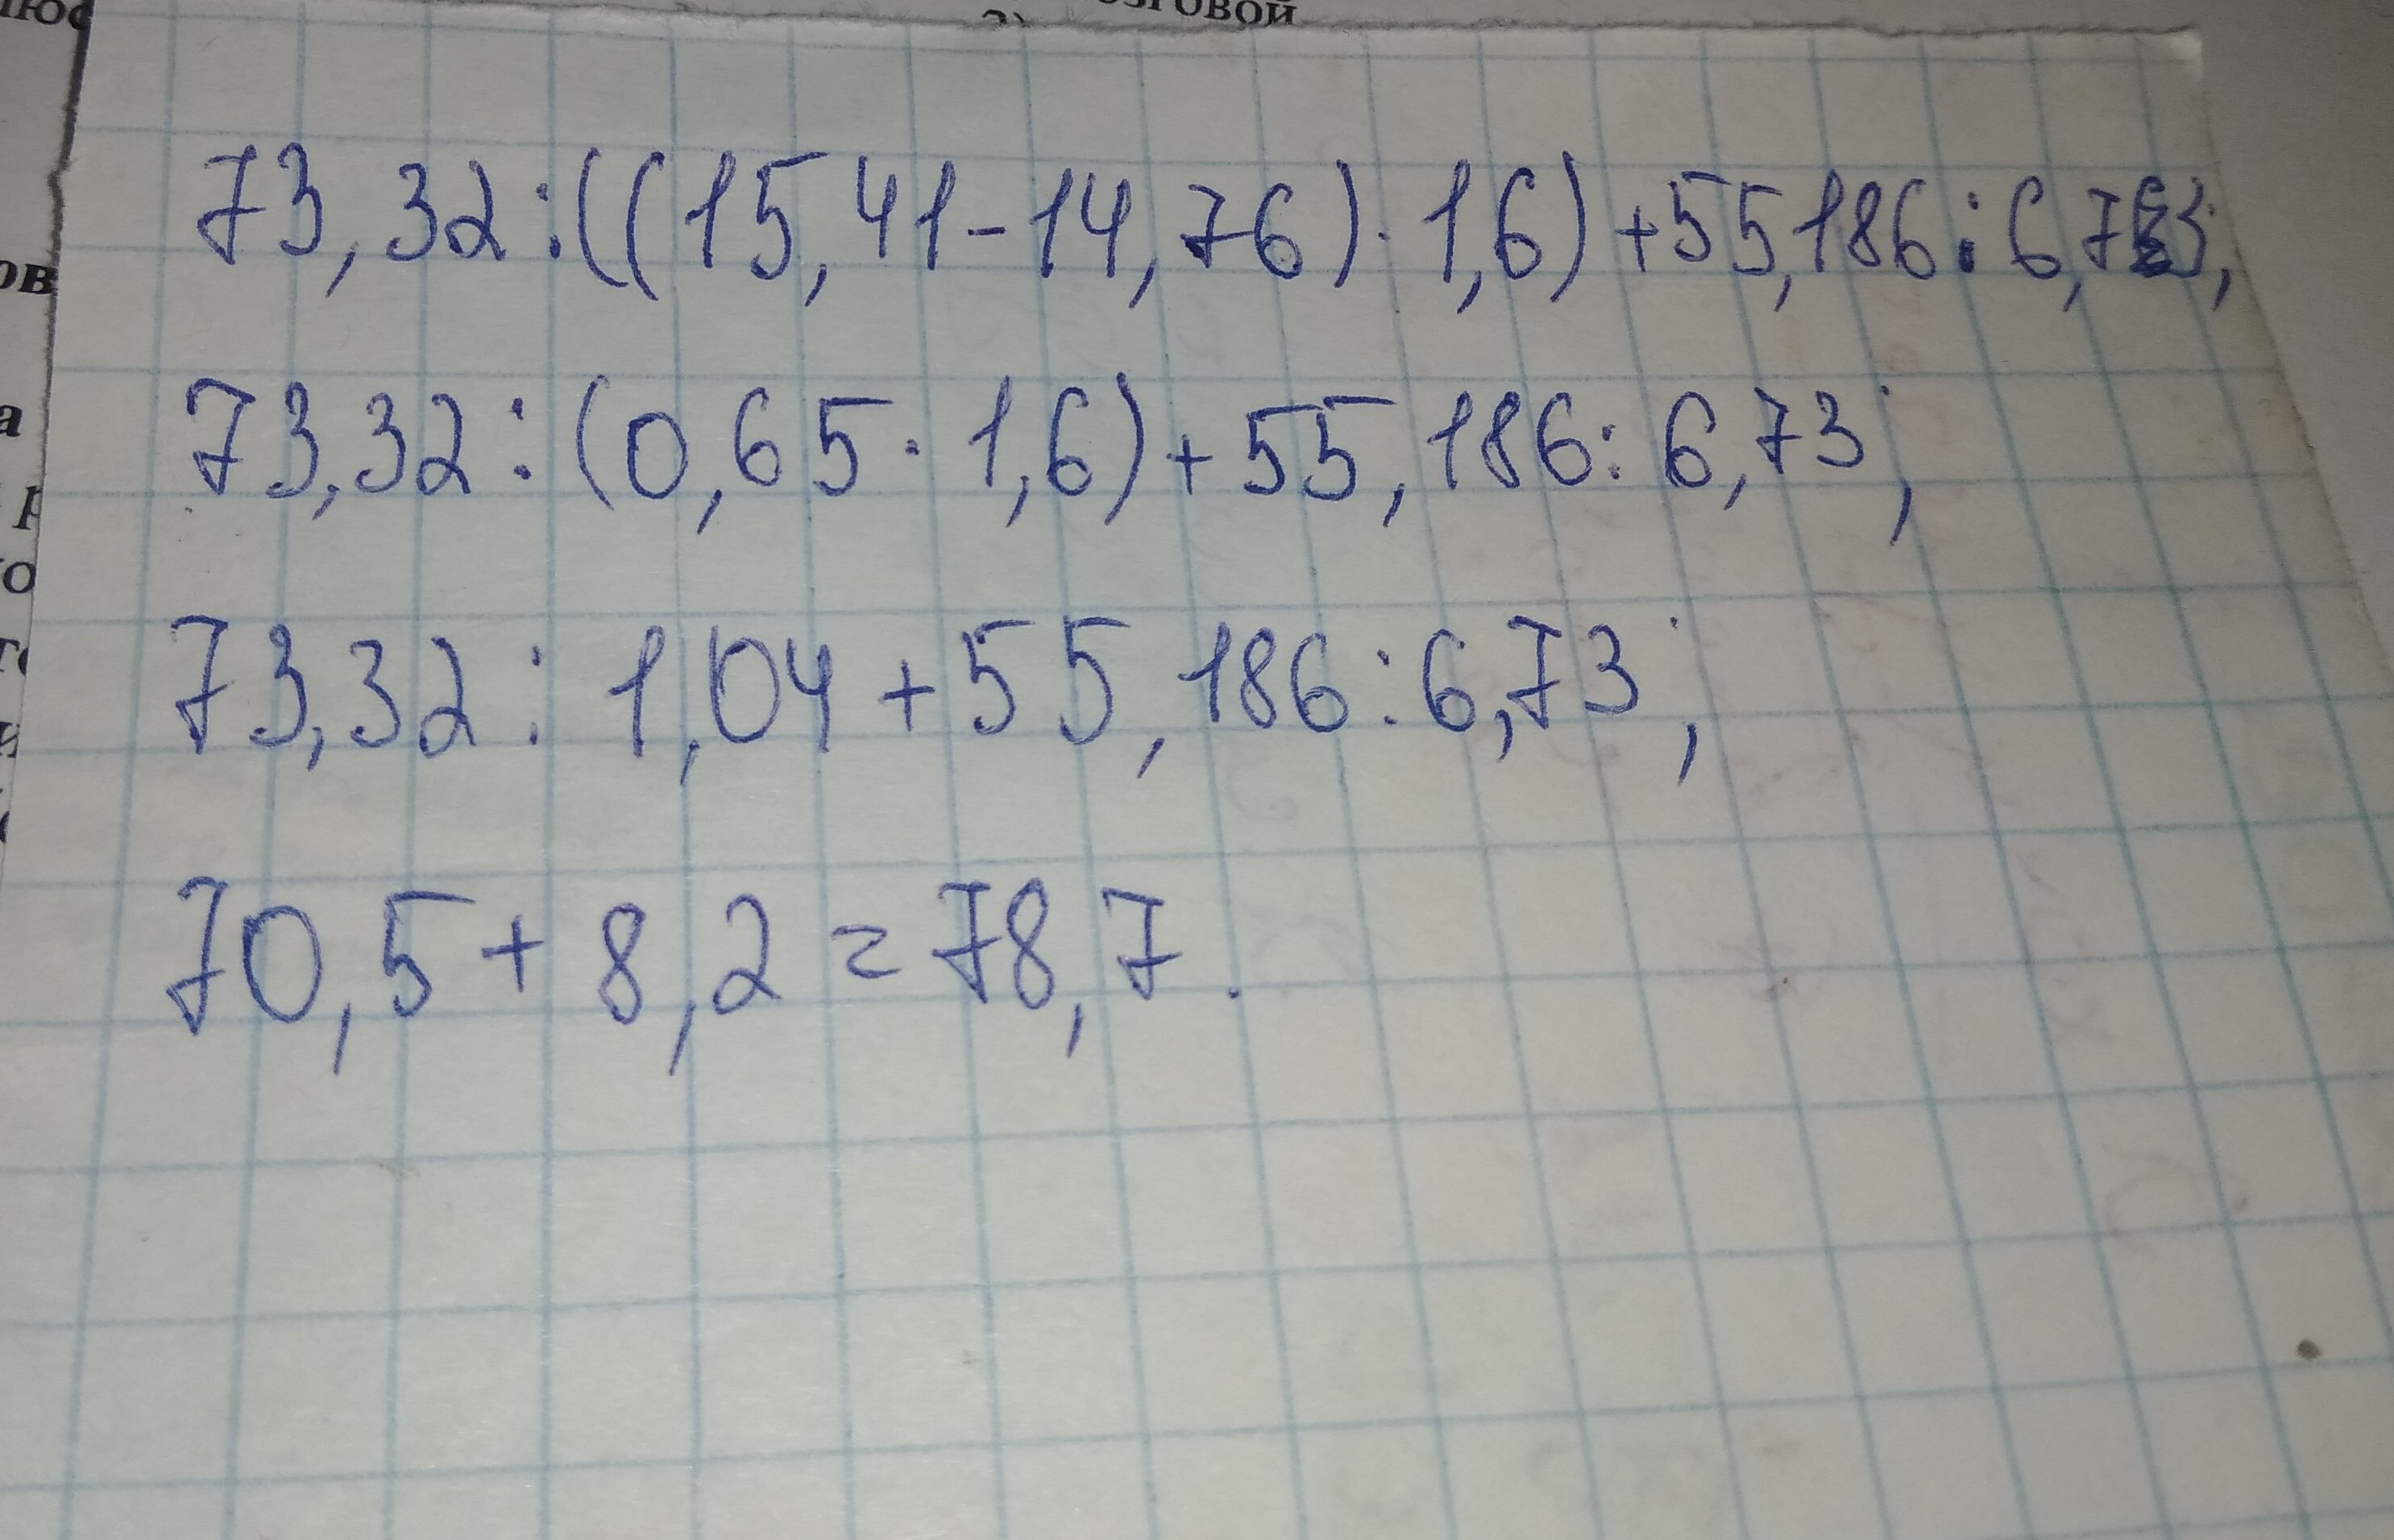 зговой
ов
а
73,32:((15,41-14,76)·1,6)+55,186:6,73;
73,32:(0,65·1,6)+55,186:6,73;
73,32:1,04+55,186:6,73;
70,5+8,2=78,7.